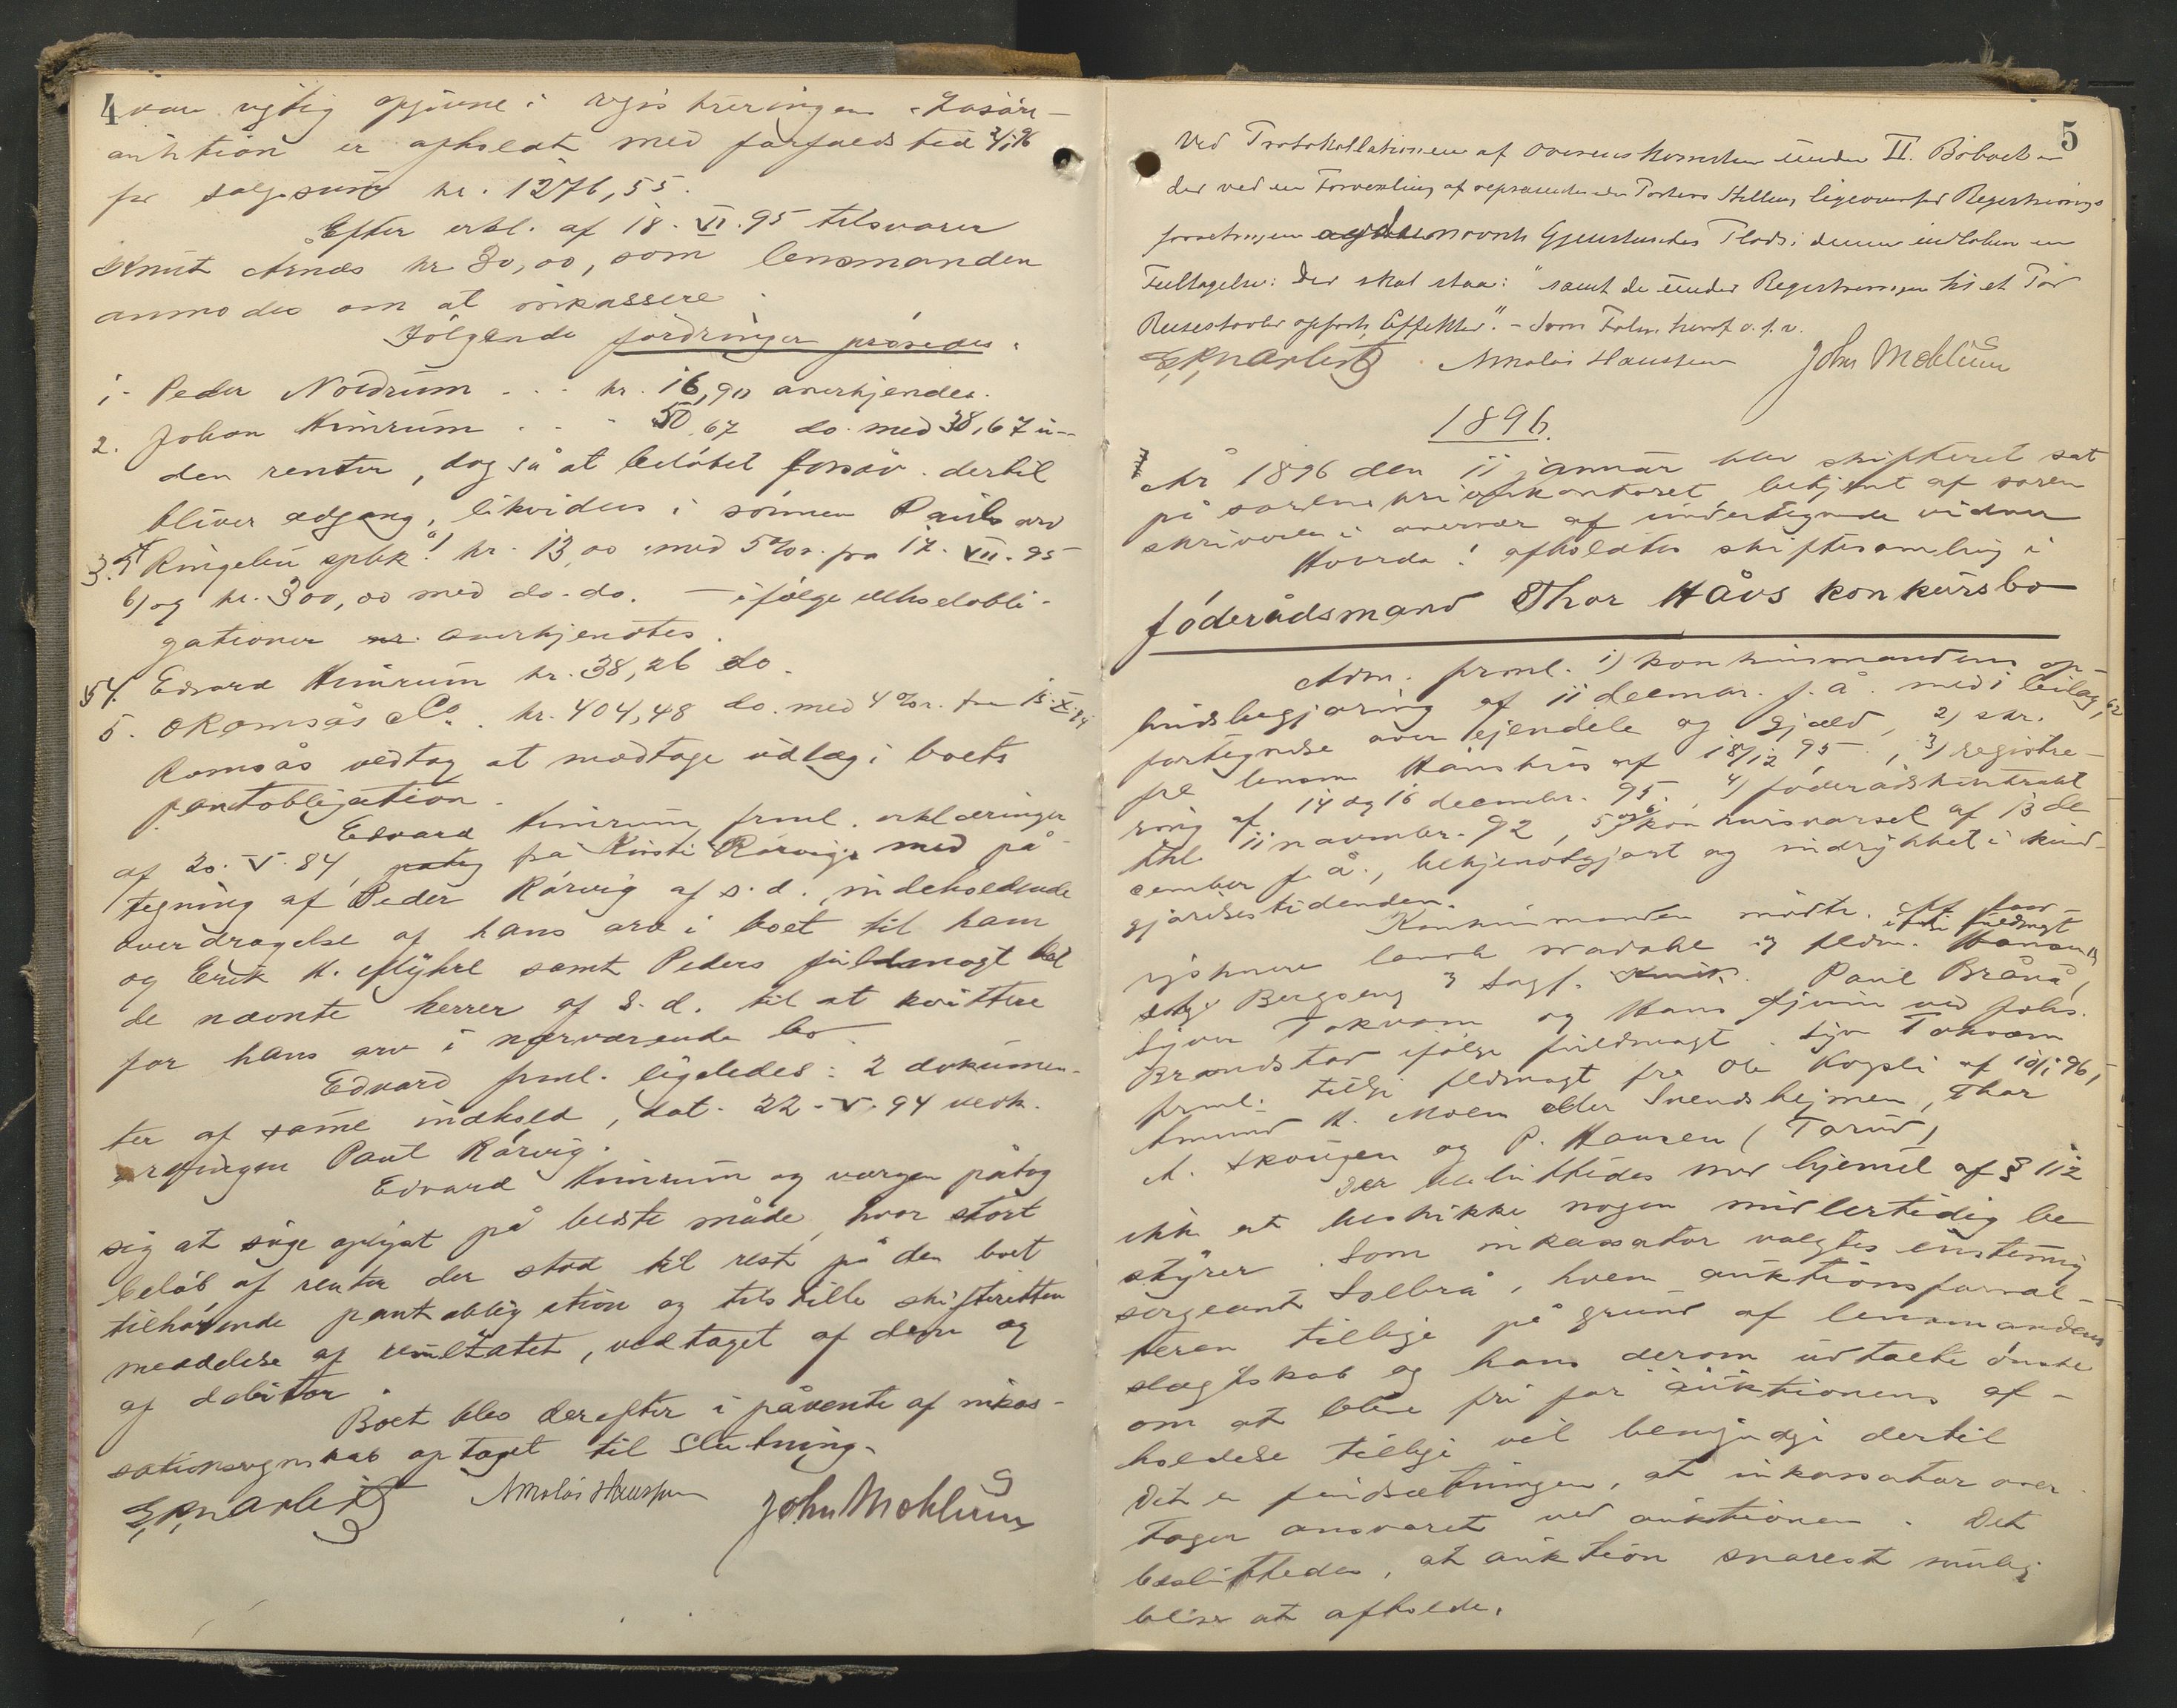 4
var rigtig opgivne i registreringen. Losöre-
auktion er afholdt med forfaldstid 2/1 96
for salgssum kr. 1276,55.
Efter erkl. af 18. VI. 95 tilsvarer
Knut Årnæs kr 30,00, som lensmanden
anmodes om at inkassere.
Følgende fordringer prövedes:
1. Peder Nordrum . . . kr. 16,90 anerkjendes.
2. Johan Himrum . . . 50,67 do. med 38,67 u-
den renter, dog så at beløbet forsåv. dertil
bliver adgang, likvideres i sönnen Pauls arv
3. Ringebu spbk. a) kr. 13,00 med 5% r. fra 17. VII. 95
b) og kr. 300,00 med do. do. – ifølge obli-
gationer anerkjendtes.
4. Edvard Himrum kr. 38,26 do.
5. O Ramsås & Co. kr. 404,48 do. med 4% r. fra
Ramsås vedtog at modtage udlæg i boets
pantobligation.
Edvard Himrum frml. erklæringer
af 20. V. 84, fra Kirsti Rörvig med på-
tegning af Peder Rörvig af s. d. indeholdende
overdragelse af hans arv i boet til ham
og Erik H. Myhre samt Peders fuldmagt
de nævnte herrer af s. d. til at kvittere
for hans arv i nærværende bo.
Edvard frml. ligeledes: 2 dokumen-
ter af samme indhold, dat. 22. V. 94 vedk.
arvingen Paul Rörvig.
Edvard Himrum og værgen påtog
sig at søge oplyst på bedste måde, hvor stort
beløb af renter der stod til rest på den boet
tilhörende pantobligation og tilstille skifteretten
meddelse af resultatet, vedtaget af dem og
af debitor.
Boet blev derefter i påvente af inkas-
sationsregnskab optaget til slutning.
Nicolai Hanssen John Moklum
5
Ved Protokollationen af Overenskomsten under II. Bobæk er
der ved en Forvexling af Partens Stilling ligeoverfor Registrerings
forretningen nævnte Gjenstandes Plads i denne indløben en
Feiltagelse: Der skal staa: "samt de under Registreringen til et Par
opførte Effekter". – Som
Nicolai Hanssen John Moklum
1896.
År 1896 den 11 januar blev skifteret sat
på sorenskriverkontoret, betjent af soren
skriveren i overvær af undertegnede vidner
Hvorda: afholdtes skiftesamling i
föderådsmand Thor Håvs konkursbo
Adm. frml. 1) konkursmandens op-
budsbegjæring af 11 decmbr. f. å. med 1 bilag,
fortegnelse over ejendele og gjæld, 2) skr.
fra lensm. af 18/12 95, 3) registre-
ring af 14 og 16 decembr. 95, 4) föderådskontrakt
thl. 11 novmbr. 92, 5) konkursvarsel af 13 de
cember f. å., bekjendtgjort og indrykket i kund-
gjørelsestidenden.
Konkursmanden mødte. Af ford-
ifølge fuldmagt
Bergseng Sagf. Paul Brånå,
Syver Tokvam og Hans ved Johs.
Brandstad ifølge fuldmagt. Syver Tokvam
frml. tillige fldmagt fra Ole Kopsli af 10/1 96,
Amund H. Moen eller Svendshejmen, Thor
A. Skougen og P. Hansen (Tarud)
Der besluttedes med hjemel af § 112
ikke at beskikke nogen midlertidig be
styrer. Som inkassator valgtes enstemig
sergeant Solbrå, hvem auktionsforval-
teren tillige på grund af lensmandens
slagtskab og hans derom udtalte ønske
om at blive fri for auktionens af-
holdelse tillige vil bemyndige dertil
Det er forudsætningen, at inkassator over
tager ansvaret ved auktionen. Det
besluttedes, at auktion snarest mulig
bliver at afholde.